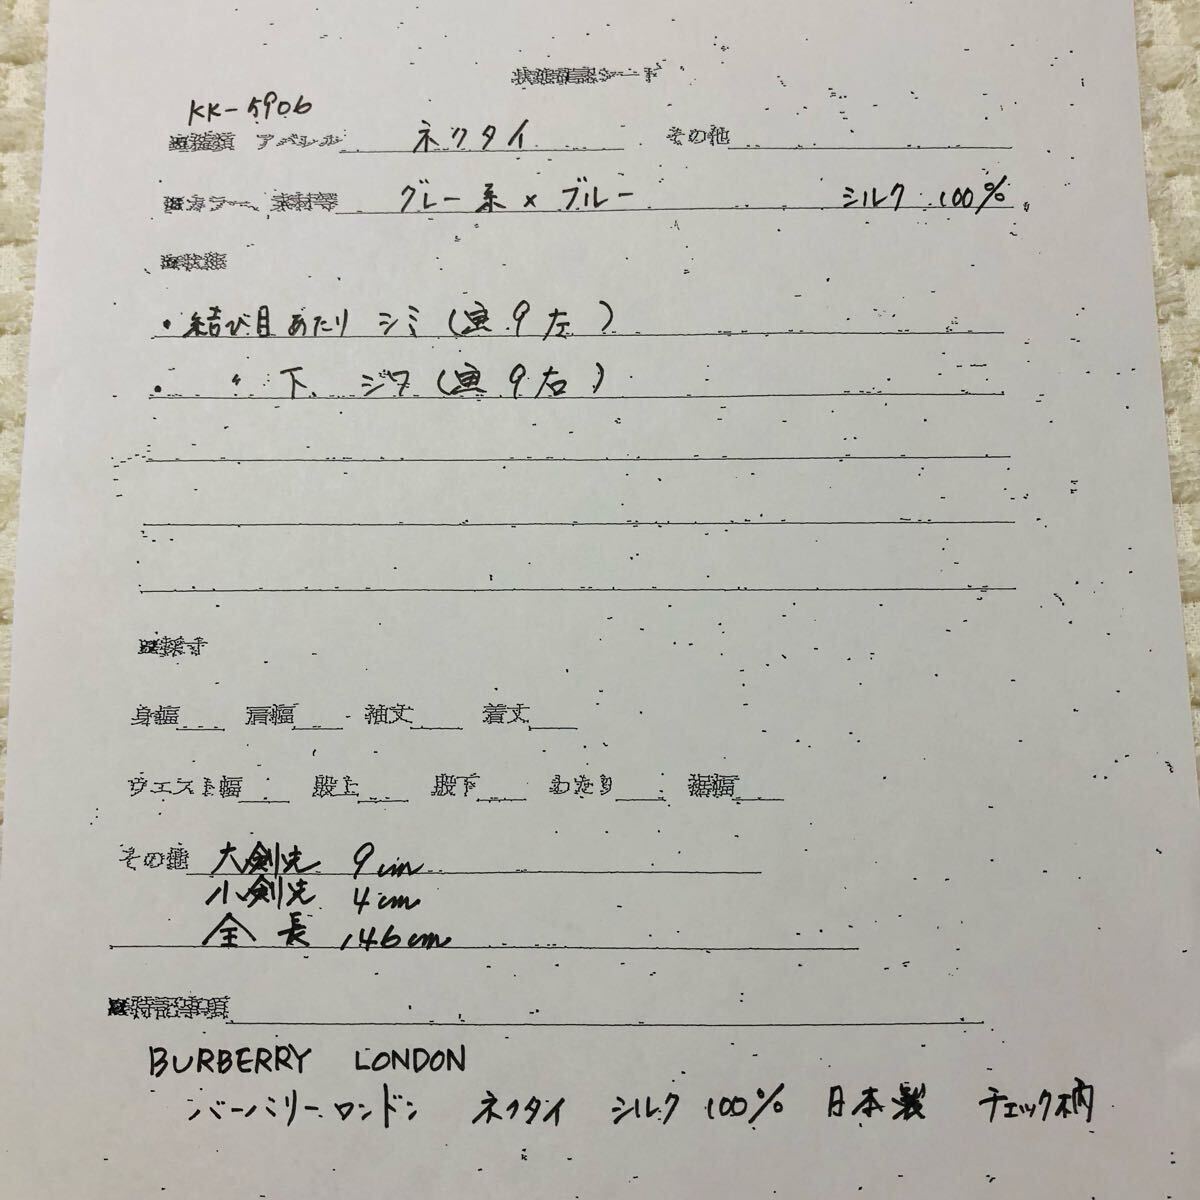 状態確認シート
KK-5906
※種類 アパレル ネクタイ その他
※カラー、素材等 グレー系×ブルー シルク 100%
※状態
・結び目あたり シミ(画9左)
・ 〃 下、 シワ(画9右)
※採寸
身幅 肩幅 袖丈 着丈
ウエスト幅 股上 股下 わたり 裾幅
その他 大剣先 9cm
小剣先 4cm
全長 146cm
※特記事項
BURBERRY LONDON
バーバリーロンドン ネクタイ シルク 100% 日本製 チェック柄